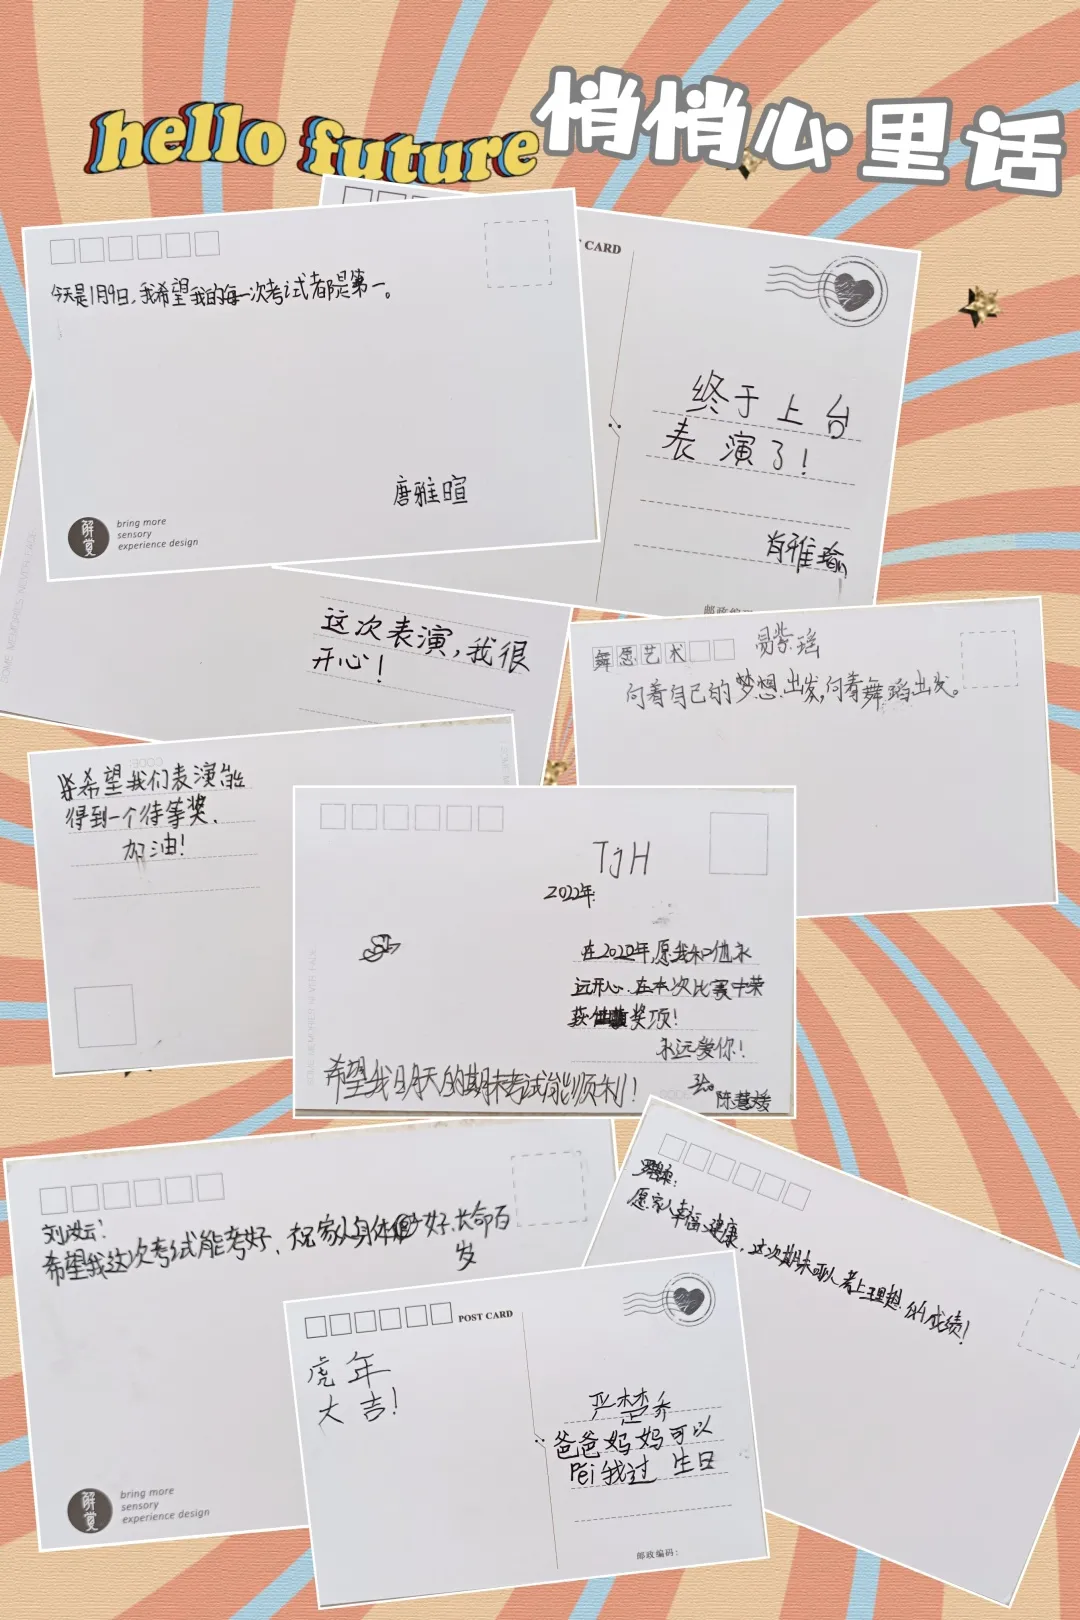 hello future 悄悄心里话
今天是1月9日,我希望我的每一次考试都是第一。
唐雅暄
解赏
bring more
sensory
experience design
T CARD
终于上台
表演了!
肖雅瑜
邮政编
这次表演,我很
开心!
SOME MEMORIES NEVER FADE
舞愿艺术
易紫瑶
向着自己的梦想出发,向着舞蹈出发。
希望我们表演能
得到一个特等奖.
加油!
TjH
2022年:
在2022年,愿我和他永
远开心.在本次比赛中荣
获 奖项!
永远爱你!
陈慧媛
希望我明天的期末考试能顺利!
SOME MEMORIES NEVER FADE
希望我这次考试能考好,祝家人身体 好,长命百
岁
愿家人幸福,健康,这次期末可以考上理想的成绩!
POST CARD
虎年
大吉!
严楚乔
爸爸妈妈可以
Pei我过 生日
邮政编码:
解赏
bring more
sensory
experience design